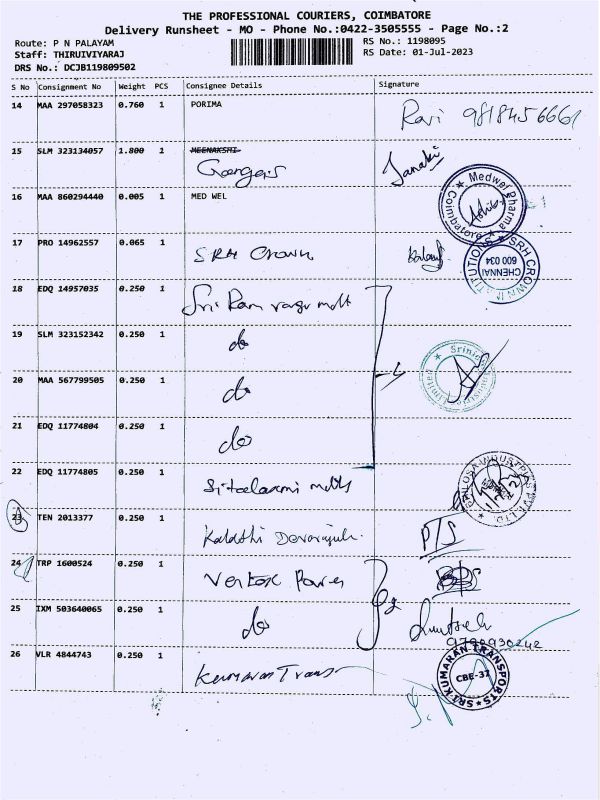 THE PROFESSIONAL COURIERS, COIMBATORE
Delivery Runsheet - MO - Phone No.:0422-3505555 - Page No.:2
Route: P N PALAYAM
RS No.: 1198095
Staff: THIRUIVIYARAJ
RS Date: 01-Jul-2023
DRS No.: DCJB119809502
S No Consignment No Weight PCS Consignee Details Signature
14 MAA 297058323 0.760 1 PORIMA Ravi 9818456661
15 SLM 323134057 1.800 1 MEENAKSHI
Janaki
16 MAA 860294440 0.005 1 MED WEL
Medwel Pharma Coimbatore
17 PRO 14962557 0.065 1 SRH Crown
SRH CROWN
CHENNAI 600 034
18 EDQ 14957035 0.250 1 Sri Ram
19 SLM 323152342 0.250 1 do
20 MAA 567799505 0.250 1 do
Limited
21 EDQ 11774804 0.250 1 do
22 EDQ 11774805 0.250 1
INDUSTRIES PVT. LTD.
23 TEN 2013377 0.250 1 P/S
24 TRP 1600524 0.250 1 Power
25 IXM 503640065 0.250 1 do
26 VLR 4844743 0.250 1 Kumaran Trans
SRI KUMARAN TRANSPORTS
CBE-37